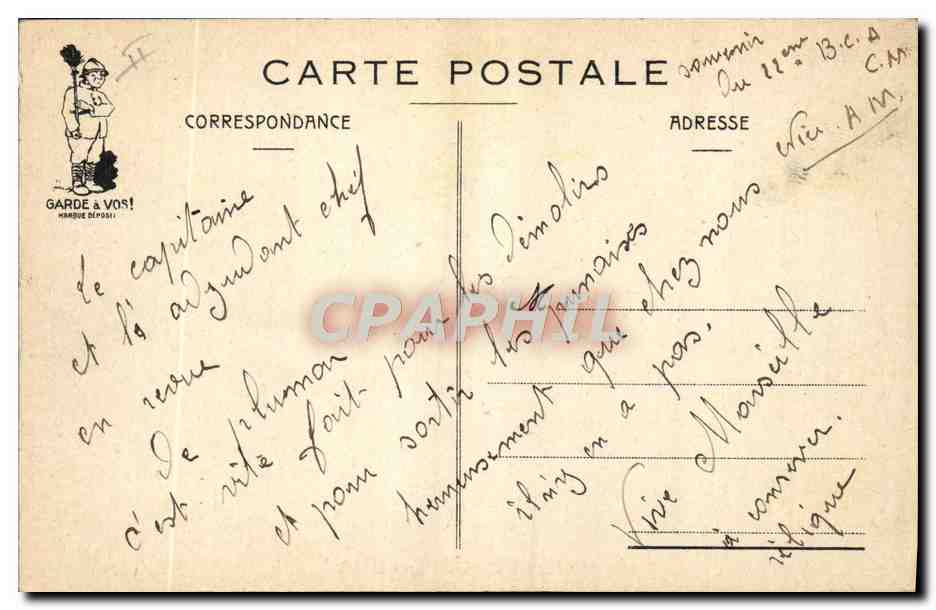 GARDE à VOS!
MARQUE DÉPOSÉE
II
CARTE POSTALE
CORRESPONDANCE
ADRESSE
souvenir
Du 22em B.C.A
C.M.
Nice. A M.
CPAPHIL
Le capitaine
et l'adjudant chef
en revue
De plumon
c'est vite fait pour les démolirs
et pour sortir les punaises
hereusement que chez nous
il n'y en a pas.
Vive Marseille
à conserver
rélique